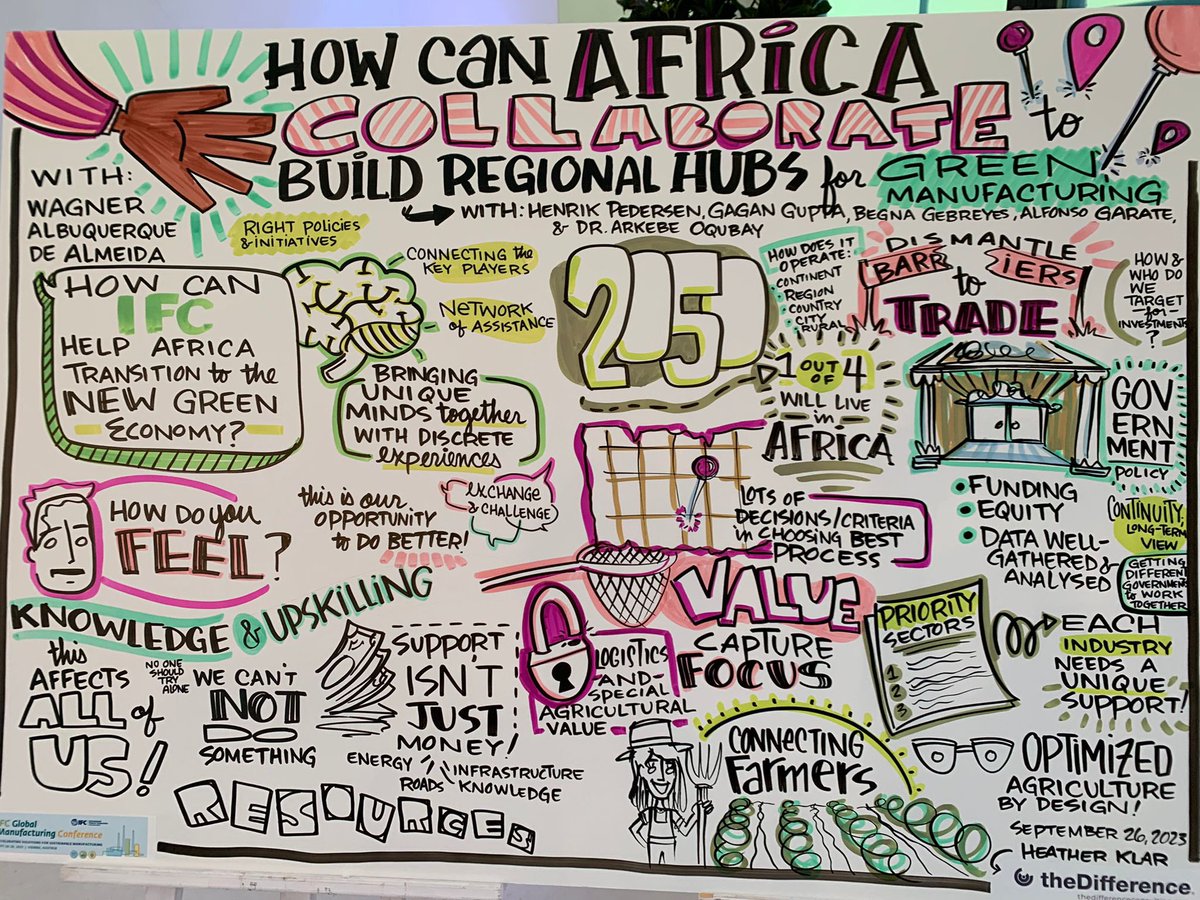 HOW CAN AFRICA
COLLABORATE to
BUILD REGIONAL HUBS for GREEN
MANUFACTURING
WITH: HENRIK PEDERSEN, GAGAN GUPTA, BEGNA GEBREYES, ALFONSO GARATE,
& DR. ARKEBE OQUBAY
WITH:
WAGNER
ALBUQUERQUE
DE ALMEIDA
RIGHT POLICIES
& INITIATIVES
CONNECTING the
KEY PLAYERS
NETWORK
of ASSISTANCE
HOW CAN
IFC
HELP AFRICA
TRANSITION to the
NEW GREEN
ECONOMY?
BRINGING
UNIQUE
MINDS together
WITH DISCRETE
experiences
2050
1 OUT OF 4
WILL LIVE
in
AFRICA
HOW DOES IT
OPERATE:
CONTINENT
REGION
COUNTRY
CITY
RURAL
DISMANTLE
BARRIERS
to
TRADE
HOW &
WHO DO
WE
TARGET
for
INVESTMENTS
?
GOV
ERN
MENT
POLICY
FUNDING
EQUITY
DATA WELL-
GATHERED &
ANALYSED
CONTINUITY,
LONG-TERM
VIEW
GETTING
DIFFERENT
GOVERNMENTS
to WORK
TOGETHER
HOW DO you
FEEL?
this is our
OPPORTUNITY
to DO BETTER!
EXCHANGE
& CHALLENGE
LOTS OF
DECISIONS/CRITERIA
in CHOOSING BEST
PROCESS
KNOWLEDGE & UPSKILLING
this
AFFECTS
ALL of
US!
NO ONE
SHOULD
TRY
ALONE
WE CAN'T
NOT
DO
SOMETHING
SUPPORT
ISN'T
JUST
MONEY!
ENERGY
ROADS
INFRASTRUCTURE
KNOWLEDGE
RESOURCES
LOGISTICS
AND
SPECIAL
AGRICULTURAL
VALUE
VALUE
CAPTURE
FOCUS
PRIORITY
SECTORS
1
2
3
EACH
INDUSTRY
NEEDS A
UNIQUE
SUPPORT!
CONNECTING
Farmers
OPTIMIZED
AGRICULTURE
BY DESIGN!
SEPTEMBER 26, 2023
HEATHER KLAR
theDifference.
IFC Global
Manufacturing Conference
IFC